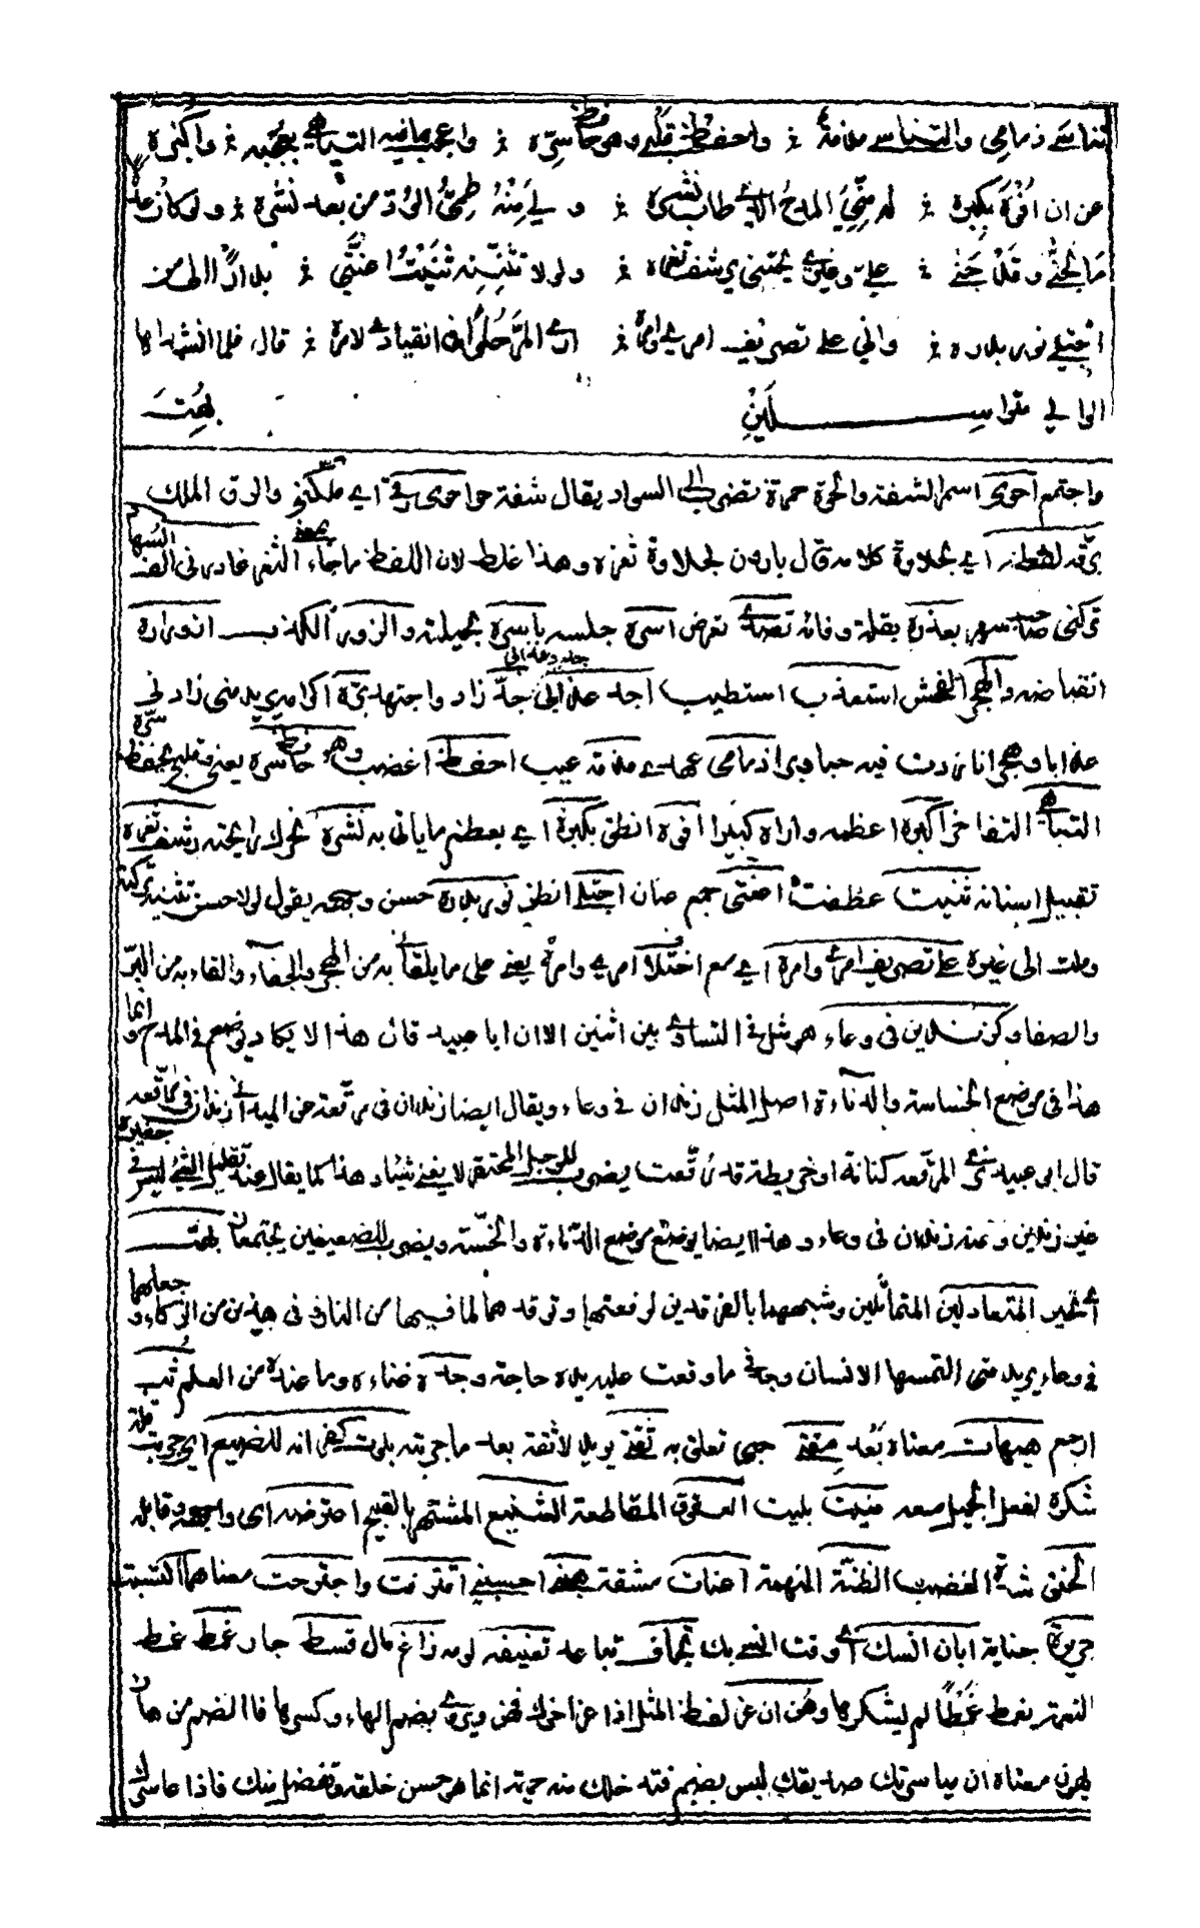 تناسى ذمامي والتناسي مذمة ⁘ واحفظ قلبي وهو حافظ سره ⁘ واعجب ما فيه التباهي بعجبه ⁘ واكبره
عن ان افوه بكبره ⁘ له مني المدح الذي طاب نشره ⁘ ولي منه طي الود من بعد نشره ⁘ ولو كان عدلا
ما تجنى وقد جنى ⁘ علي وغيري يجتني رشف ثغره ⁘ ولولا تثنيه ثنيت اعنتي ⁘ بدارا الى من
اجتلي نور بدره ⁘ واني على تصريف امري وامره ⁘ ارى المر حلوا في انقيادي لامره ⁘ قال فلما انشداها
الوالي متراسلين بهت
واجتمع احوى اسمر الشفة والحوة حمرة تضرب الى السواد يقال شفة حوا حوى رقي اي ملكني والرق الملك
برقة لفظه اي بحلاوة كلامه قال بارون لحلاوة ثغره وهذا غلط لان اللفظ ما جاء بمعنى الثغر غادرني الف السهاد
تركني صاحب سهر بغدره بقلة وفائه تصدى تعرض اسره حبسه باسره بجملته والزور الكذب ازوراره
انقباضه والهجر الفحش استعذب استطيب اجد عذابي جدد جد زاد واجتهد بره اكرامه يريد متى زادني
عذابا وهجرا انا زدت فيه حبا وبرا ذمامي عهدي مذمة عيب احفظ اغضب وهو حافظ سره يعني قلبي يحفظ سره
التباهي التفاخر اكبره اعظمه واراه كبيرا افوه انطق بكبره اي بعظم ما ياتي به نشره تحرك رايحته رشف ثغره
تقبيل اسنانه ثنيت عطفت اعنتي جمع عنان اجتلي انظر نور بدره حسن وجهه يقول لولا حسن تثنيه تركته
وملت الى غيره على تصريف امري وامره اي مع اختلاف امري وامره يعني على ما يلقاني به من الهجر والجفاء والقاه به من البر
والصفا وكزندين في وعاء هو مثل في التساوي بين اثنين الا ان ابا عبيد قال هذا لا يكاد يوضع في المدح وانما
هذا في موضع الخساسة والدناءة اصل المثل زندان في وعاء ويقال ايضا زندان في مرقعة عن الميداني زندان في مرقعة
قال ابو عبيد نرى المرقعة كنانة او خريطة قد رقعت يضرب للرجل المحتقر لا يغني شيئا وهذا كما يقال عند تقليل الشيء ليس في جفيره
غير زندين ومنه زندان في وعاء وهذا ايضا يوضع موضع الدناءة والخسة ويضرب للضعيفين يجتمعان بهت
اي تحير المتعادلين المتماثلين وشبههما بالفرقدين لرفعتهما وتوقدهما لما فيهما من النار في هذين من الذكاء وجعلهما
في وعاء يريد متى التمسها الانسان وجد في ما وقعت عليه يده حاجته وجده غناءه وما عنده من العلم ثب
ارجع هيهات معناه بعد مقتي حبي تعلق به ثقتي يريد لا ثقة بعد ما جربته بلوت كفرانه للصنيع اي جربت قلة
شكره لفعل الجميل معه منيت بليت العقوق المقاطعة الشنيع المشتهر بالقبيح اعترضه اي واجهه وقابله
الحنق شدة الغضب الظنة التهمة اعنات مشقة احسبني اقترفت واجترحت معناهما اكتسبت
جريرة جناية ابان انسك اي وقت انسي بك تجاف تباعد تعنيفه لومه زاغ مال قسط جار غمط غمط
النعمة يغمط غمطا لم يشكرها وهن ان عز لفظ المثل اذا عز اخوك فهن ويروى بضم الهاء وكسرها فالضم من هان
يهون معناه ان مياسرتك صديقك ليس بضيم فتدخلك منه حمية انما هو حسن خلقه وتفضل منك فاذا عاسرك